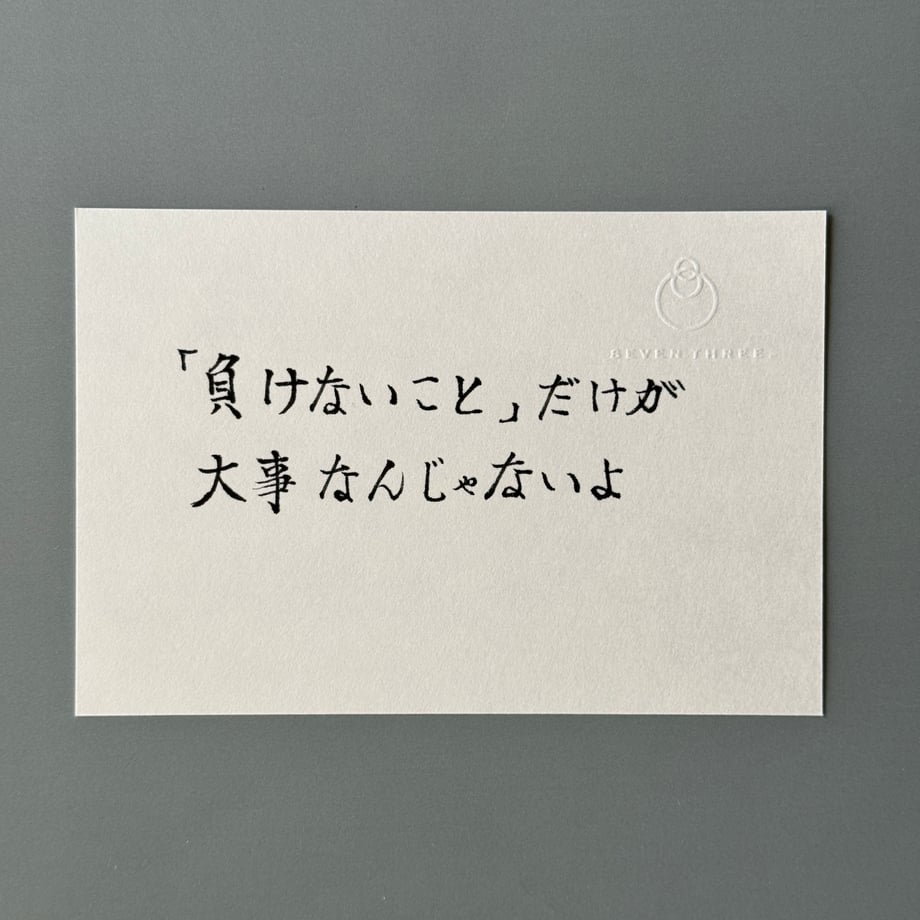 SEVEN THREE.
「負けないこと」だけが
大事なんじゃないよ